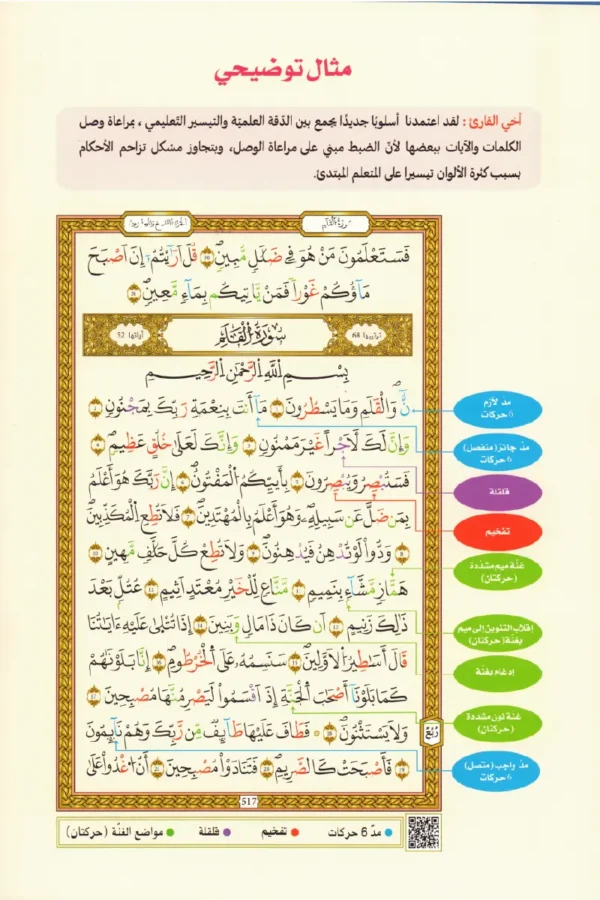 مثال توضيحي
أخي القارئ : لقد اعتمدنا أسلوبًا جديدًا يجمع بين الدّقة العلميّة والتيسير التّعليمي ، بمراعاة وصل
الكلمات والآيات ببعضها لأنّ الضبط مبني على مراعاة الوصل، وبتجاوز مشكل تزاحم الأحكام
بسبب كثرة الألوان تيسيرا على المتعلم المبتدئ.
سورة القلم
فَسَتَعْلَمُونَ مَنْ هُوَ فِي ضَلَٰلٍ مُّبِينٍ ۝ قُلْ أَرَٰيْتُمُ إِنْ أَصْبَحَ
مَآؤُكُمْ غَوْراً فَمَنْ يَّاتِيكُم بِمَآءٍ مَّعِينٍ ۝
ترتيبها 68
سُورَةُ الْقَلَمِ
آياتها 52
بِسْمِ اللَّهِ الرَّحْمَٰنِ الرَّحِيمِ
نٓ وَالْقَلَمِ وَمَا يَسْطُرُونَ ۝ مَآ أَنتَ بِنِعْمَةِ رَبِّكَ بِمَجْنُونٍ ۝
وَإِنَّ لَكَ لَأَجْراً غَيْرَ مَمْنُونٍ ۝ وَإِنَّكَ لَعَلَىٰ خُلُقٍ عَظِيمٍ ۝
فَسَتُبْصِرُ وَيُبْصِرُونَ ۝ بِأَييِّكُمُ الْمَفْتُونُ ۝ إِنَّ رَبَّكَ هُوَ أَعْلَمُ
بِمَن ضَلَّ عَن سَبِيلِهِ وَهُوَ أَعْلَمُ بِالْمُهْتَدِينَ ۝ فَلَا تُطِعِ الْمُكَذِّبِينَ
۝ وَدُّوا لَوْ تُدْهِنُ فَيُدْهِنُونَ ۝ وَلَا تُطِعْ كُلَّ حَلَّافٍ مَّهِينٍ ۝
هَمَّازٍ مَّشَّآءٍ بِنَمِيمٍ ۝ مَّنَّاعٍ لِّلْخَيْرِ مُعْتَدٍ اَثِيمٍ ۝ عُتُلٍّ بَعْدَ
ذَٰلِكَ زَنِيمٍ ۝ أَن كَانَ ذَا مَالٍ وَبَنِينَ ۝ إِذَا تُتْلَىٰ عَلَيْهِ ءَايَٰتُنَا
قَالَ أَسَٰطِيرُ الْأَوَّلِينَ ۝ سَنَسِمُهُ عَلَى الْخُرْطُومِ ۝ إِنَّا بَلَوْنَٰهُمْ
كَمَا بَلَوْنَآ أَصْحَٰبَ الْجَنَّةِ إِذَ اقْسَمُوا لَيَصْرِمُنَّهَا مُصْبِحِينَ ۝
وَلَا يَسْتَثْنُونَ ۝ فَطَافَ عَلَيْهَا طَآئِفٌ مِّن رَّبِّكَ وَهُمْ نَآئِمُونَ
۝ فَأَصْبَحَتْ كَالصَّرِيمِ ۝ فَتَنَادَوْا مُصْبِحِينَ ۝ أَنُ اغْدُوا عَلَىٰ
رُبُع
517
مد لازم
6 حركات
مدّ جائز (منفصل)
6 حركات
قلقلة
تفخيم
غنّة ميم مشدّدة
(حركتان)
إقلاب التنوين إلى ميم
بغنّة (حركتان)
إدغام بغنّة
غنة نون مشدّدة
(حركتان)
مدّ واجب (متصل)
6 حركات
مدّ 6 حركات
تفخيم
قلقلة
مواضع الغنّة (حركتان)